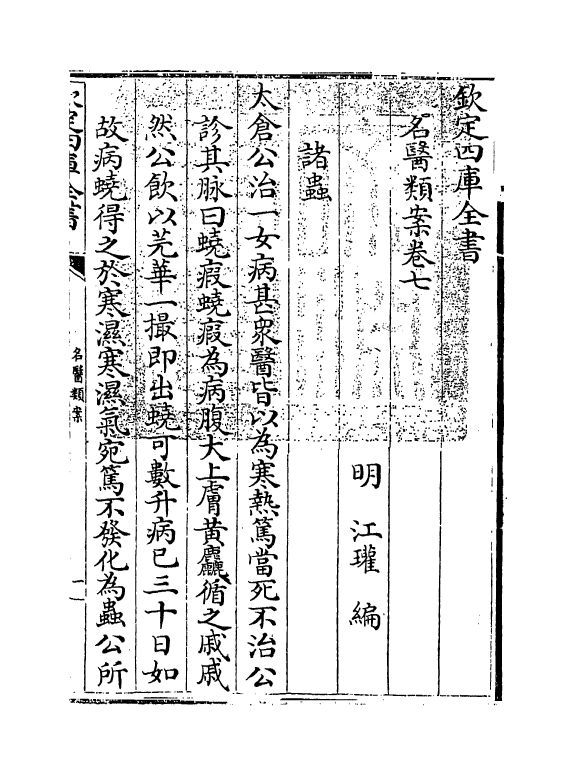 欽定四庫全書
名醫類案卷七
明 江瓘 編
諸蟲
太倉公治一女病甚衆醫皆以為寒熱篤當死不治公
診其脉曰蟯瘕蟯瘕為病腹大上膚黄麤循之戚戚
然公飲以芫華一撮即出蟯可數升病已三十日如
故病蟯得之於寒濕寒濕氣宛篤不發化為蟲公所
欽定四庫全書
名醫類案
一